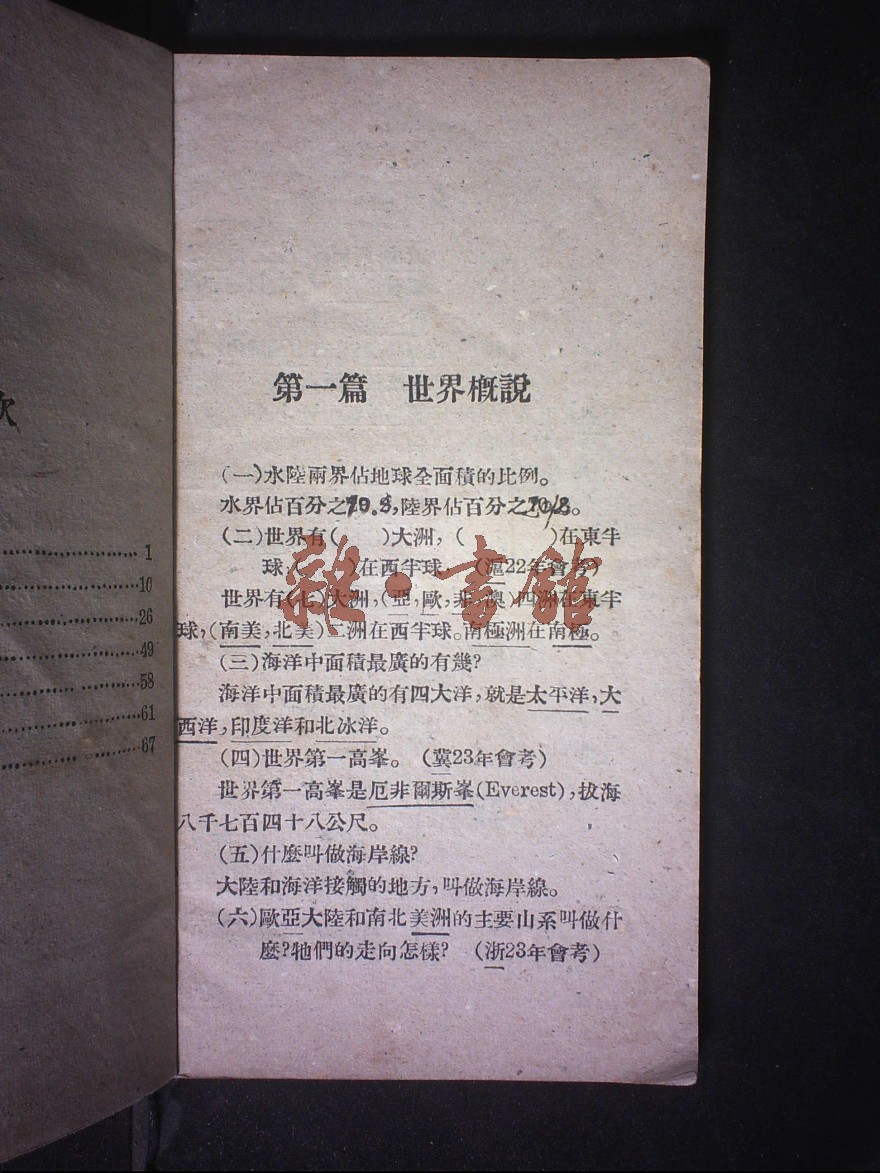 次
1
10
26
49
58
61
67
第一篇 世界概說
(一)水陸兩界佔地球全面積的比例。
水界佔百分之70.8,陸界佔百分之
(二)世界有( )大洲,( )在東半
球,( )在西半球。(滬22年會考)
世界有(七)大洲,(亞,歐,非,澳)四洲在東半
球,(南美,北美)二洲在西半球。南極洲在南極。
(三)海洋中面積最廣的有幾?
海洋中面積最廣的有四大洋,就是太平洋,大
西洋,印度洋和北冰洋。
(四)世界第一高峯。(冀23年會考)
世界第一高峯是厄非爾斯峯(Everest),拔海
八千七百四十八公尺。
(五)什麼叫做海岸線?
大陸和海洋接觸的地方,叫做海岸線。
(六)歐亞大陸和南北美洲的主要山系叫做什
麼?牠們的走向怎樣?(浙23年會考)
雜·書館